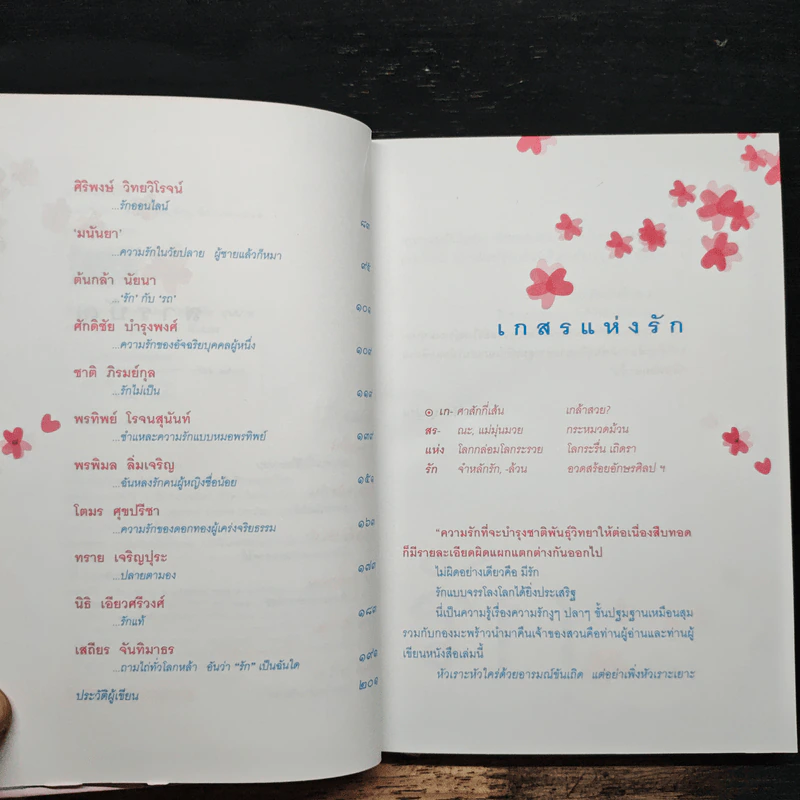 ศิริพงษ์ วิทยวิโรจน์
...รักออนไลน์
'มนันยา'
...ความรักในวัยปลาย ผู้ชายแล้วก็หมา ๙๕
ต้นกล้า นัยนา
...'รัก' กับ 'รถ'
ศักดิชัย บำรุงพงศ์
...ความรักของอัจฉริยบุคคลผู้หนึ่ง ๑๐๙
ชาติ ภิรมย์กุล
...รักไม่เป็น ๑๑๙
พรทิพย์ โรจนสุนันท์
...ชำแหละความรักแบบหมอพรทิพย์ ๑๓๙
พรพิมล ลิ่มเจริญ
...ฉันหลงรักคนผู้หญิงชื่อน้อย ๑๕๑
โตมร ศุขปรีชา
...ความรักของดอกทองผู้เคร่งจริยธรรม ๑๖๑
ทราย เจริญปุระ
...ปลายตามอง ๑๗๓
นิธิ เอียวศรีวงศ์
...รักแท้ ๑๘๓
เสถียร จันทิมาธร
...ถามไถ่ทั่วโลกหล้า อันว่า "รัก" เป็นฉันใด ๑๙๑
ประวัติผู้เขียน ๒๐๑
เกสรแห่งรัก
๏ เก- ศาสักกี่เส้น เกล้าสวย?
สร- ณะ, แม่มุ่นมวย กระหมวดม้วน
แห่ง โลกกล่อมโลกระรวย โลกระรื่น เถิดรา
รัก จำหลักรัก, -ล้วน อวดสร้อยอักษรศิลป ฯ
"ความรักที่จะบำรุงชาติพันธุ์วิทยาให้ต่อเนื่องสืบทอด
ก็มีรายละเอียดผิดแผกแตกต่างกันออกไป
ไม่ผิดอย่างเดียวคือ มีรัก
รักแบบจรรโลงโลกได้ยิ่งประเสริฐ
นี่เป็นความรู้เรื่องความรักงูๆ ปลาๆ ชั้นปฐมฐานเหมือนสุม
รวมกับกองมะพร้าวนำมาคืนเจ้าของสวนคือท่านผู้อ่านและท่านผู้
เขียนหนังสือเล่มนี้
หัวเราะหัวใคร่ด้วยอารมณ์ขันเถิด แต่อย่าเพิ่งหัวเราะเยาะ